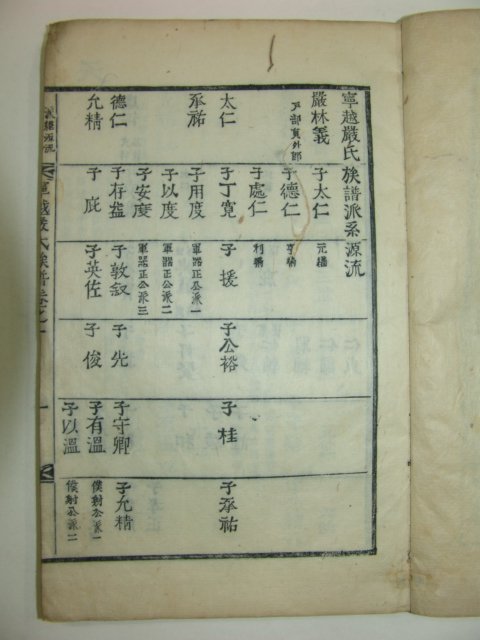 寧越嚴氏族譜派系源流
嚴林義
戶部員外郎
子太仁
子德仁
子處仁
太仁
子丁寬
子援
子公裕
子桂
子承祐
承祐
子用度
軍器正公派一
子以度
軍器正公派二
子安度
軍器正公派三
德仁
子存盎
子敦叙
子先
子守卿
子允精
允精
子庇
子英佐
子俊
子有溫
僕射公派一
子以溫
僕射公派二
派系源流
寧越嚴氏族譜卷之一
一